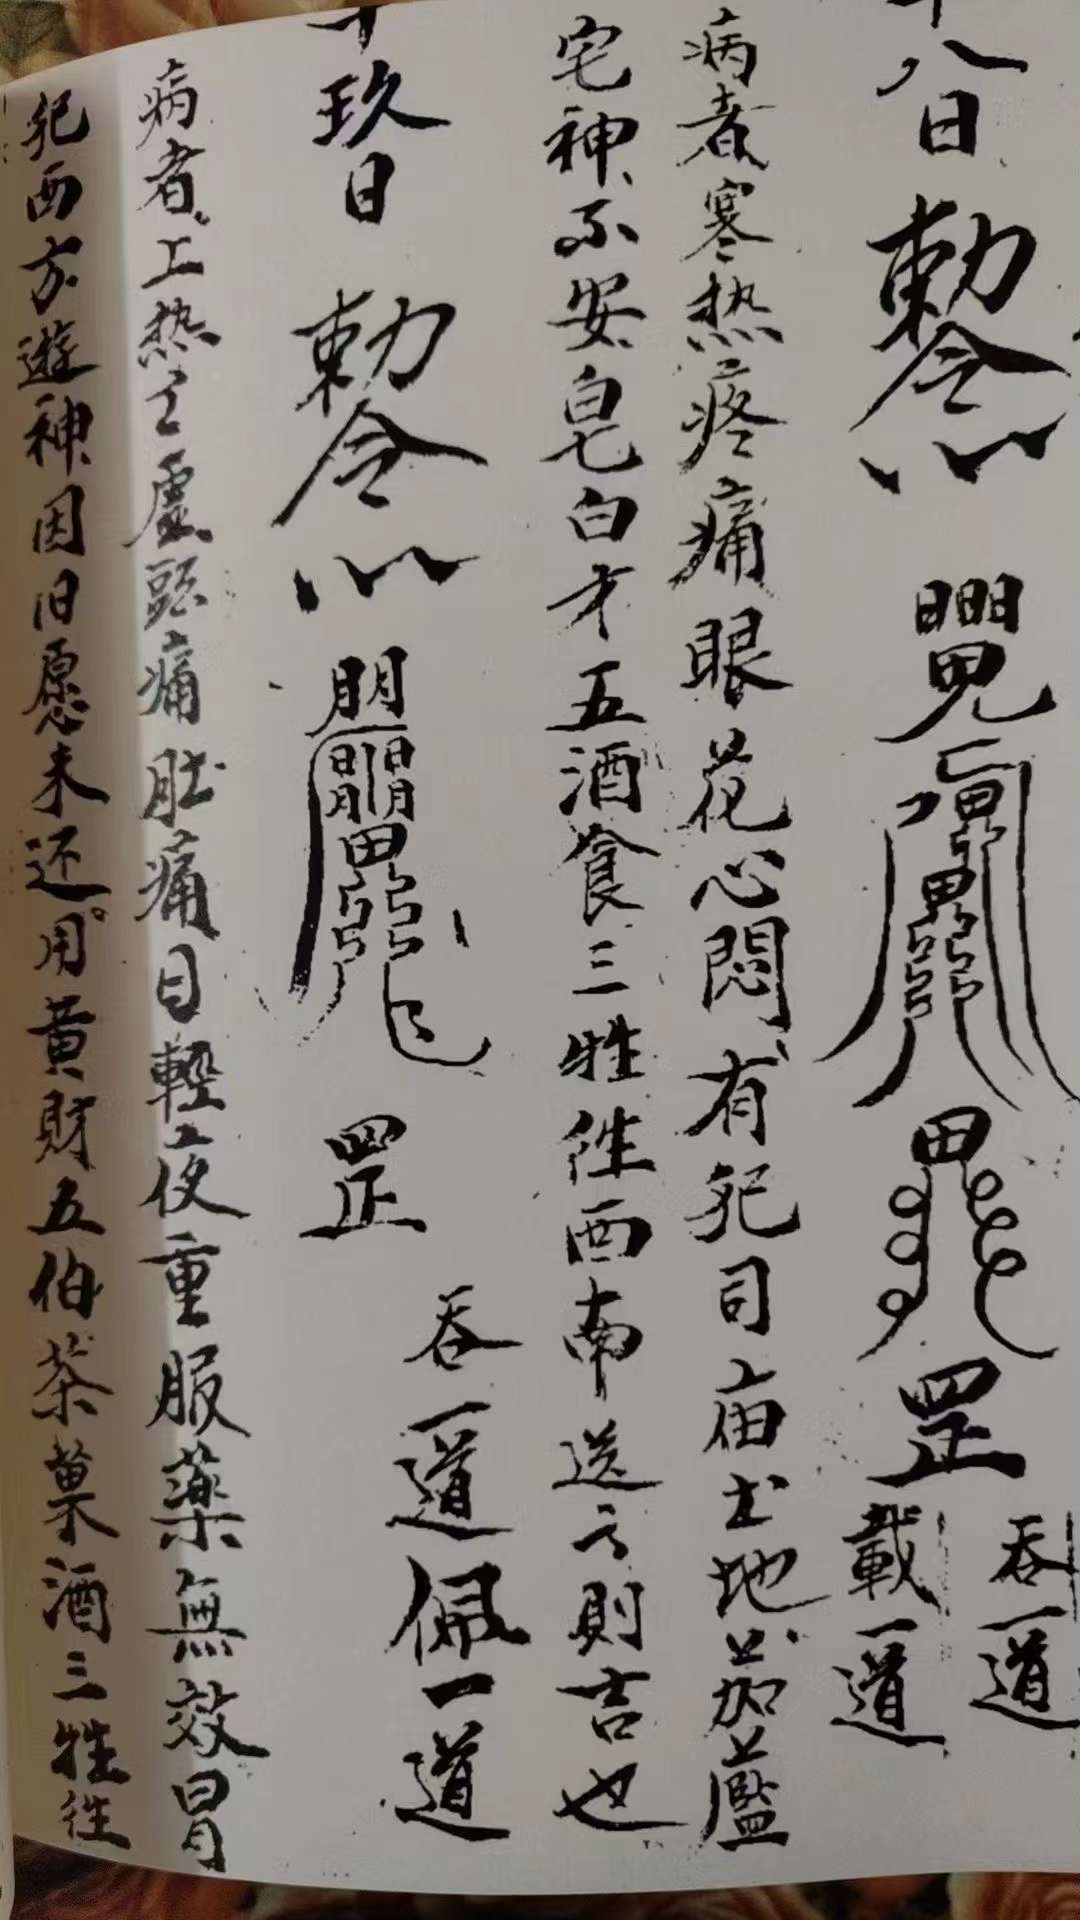 十八日 勅令 罡
吞一道
載一道
病者寒热疼痛眼花心悶有犯司庙土地茄藍
宅神不安皂白才五酒食三牲徃西南送之則吉也
十玖日 勅令 罡
吞一道佩一道
病者上热下虛頭痛肚痛日輕夜重服藥無效冐
犯西方遊神因旧愿未还用黄財五伯茶菓酒三牲徃